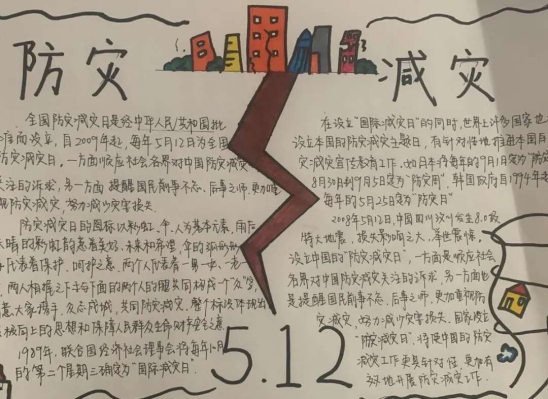 防灾
减灾
全国防灾减灾日是经中华人民共和国批
准而设立，自2009年起，每年5月12日为全国
防灾减灾日。一方面顺应社会各界对中国防灾减灾
关注的诉求，另一方面提醒国民前事不忘、后事之师，更加重
视防灾减灾，努力减少灾害损失。
防灾减灾日的图标以彩虹、伞、人为基本元素，雨后
天晴的彩虹韵意着美好、未来和希望，伞的弧形形
代表着保护、呵护之意，两个人代表着一男一女、一老一
两人相握之手与下面的两个人的腿共同构成一个"众"字，
意大家携手，众志成城，共同防灾减灾。整个标识体现出
积极向上的思想和保障人民群众生命财产安全之意
1989年，联合国经济社会理事会将每年10月
的第二个星期三确定为"国际减灾日"。
在设立"国际减灾日"的同时，世界上许多国家也
设立本国的防灾减灾主题日，有针对性地推进本国
灾减灾宣传教育工作。如日本将每年的9月1日定为"防灾
8月30日到9月5日定为"防灾周"，韩国政府自1994年起
每年的5月25日定为"防灾日"
2008年5月12日，中国四川汶川发生8.0级
特大地震，损失影响之大，举世震惊。
设立中国的"防灾减灾日"，一方面是顺应社会
各界对中国防灾减灾关注的诉求，另一方面也
是提醒国民前事不忘、后事之师，更加重视防
灾减灾，努力减少灾害损失。国家设立
"防灾减灾日"，将使中国的防灾
减灾工作更具针对性，更加有
效地开展防灾减灾工作。
5.12